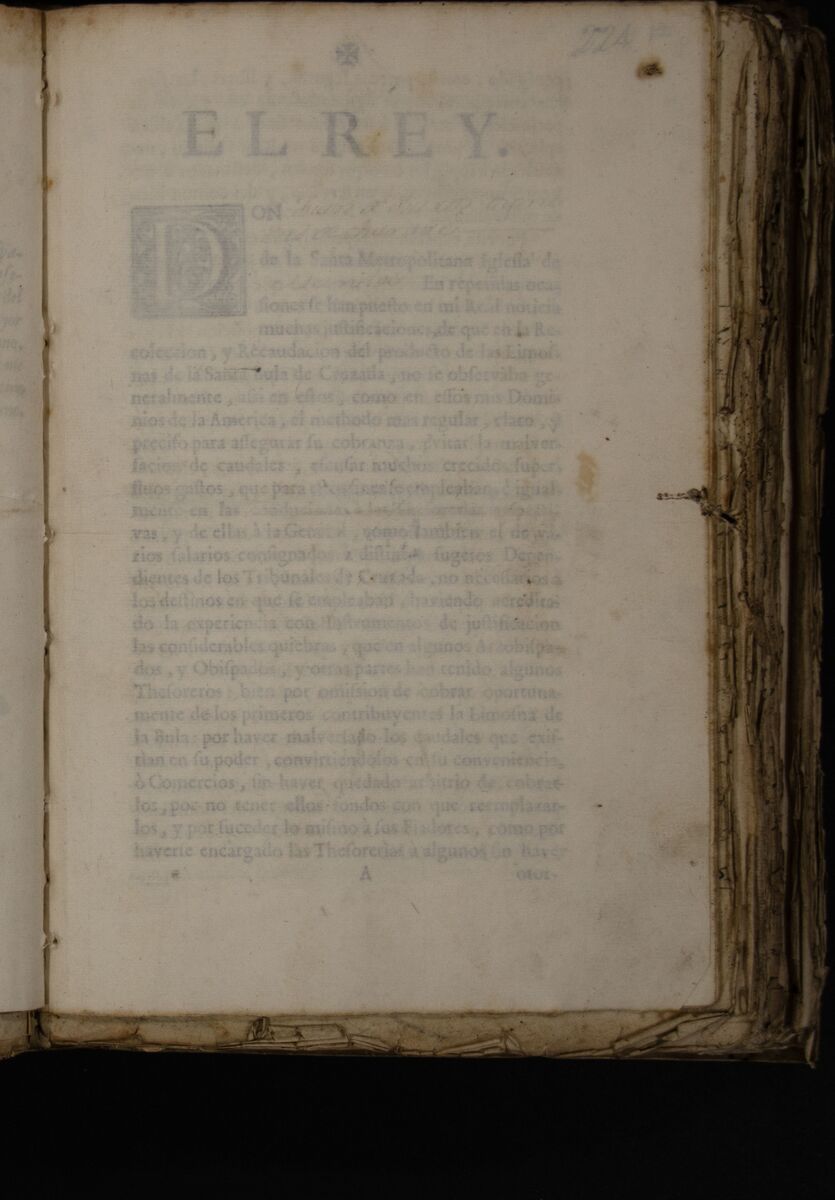 224
✠
EL REY.
DON
de la Santa Metropolitana Iglesia de
En repetidas oca-
siones se han puesto en mi Real noticia
muchas justificaciones, de que en la Re-
coleccion, y Recaudacion del producto de las Limos-
nas de la Santa Bula de Cruzada, no se observaba ge-
neralmente, assi en estos, como en essos mis Domi-
nios de la America, el methodo mas regular, claro, y
preciso para assegurar su cobranza, evitar la malver-
sacion de caudales, escusar muchos crecidos super-
fluos gastos, que para estos fines se empleaban, è igual-
mente en las conducciones à las Thesorerias respecti-
vas, y de ellas à la General, como tambien el de va-
rios salarios consignados à distintos sugetos Depen-
dientes de los Tribunales de Cruzada, no necessarios à
los destinos en que se empleaban, haviendo acredita-
do la experiencia con Instrumentos de justificacion
las considerables quiebras, que en algunos Arzobispa-
dos, y Obispados, y otras partes han tenido algunos
Thesoreros, bien por omission de cobrar oportuna-
mente de los primeros contribuyentes la Limosna de
la Bula: por haver malversado los caudales que exis-
tian en su poder, convirtiendolos en su conveniencia,
ò Comercios, sin haver quedado arbitrio de cobrar-
los, por no tener ellos fondos con que reemplazar-
los, y por suceder lo mismo à sus Fiadores, como por
haverse encargado las Thesorerias à algunos sin haver
A otor-